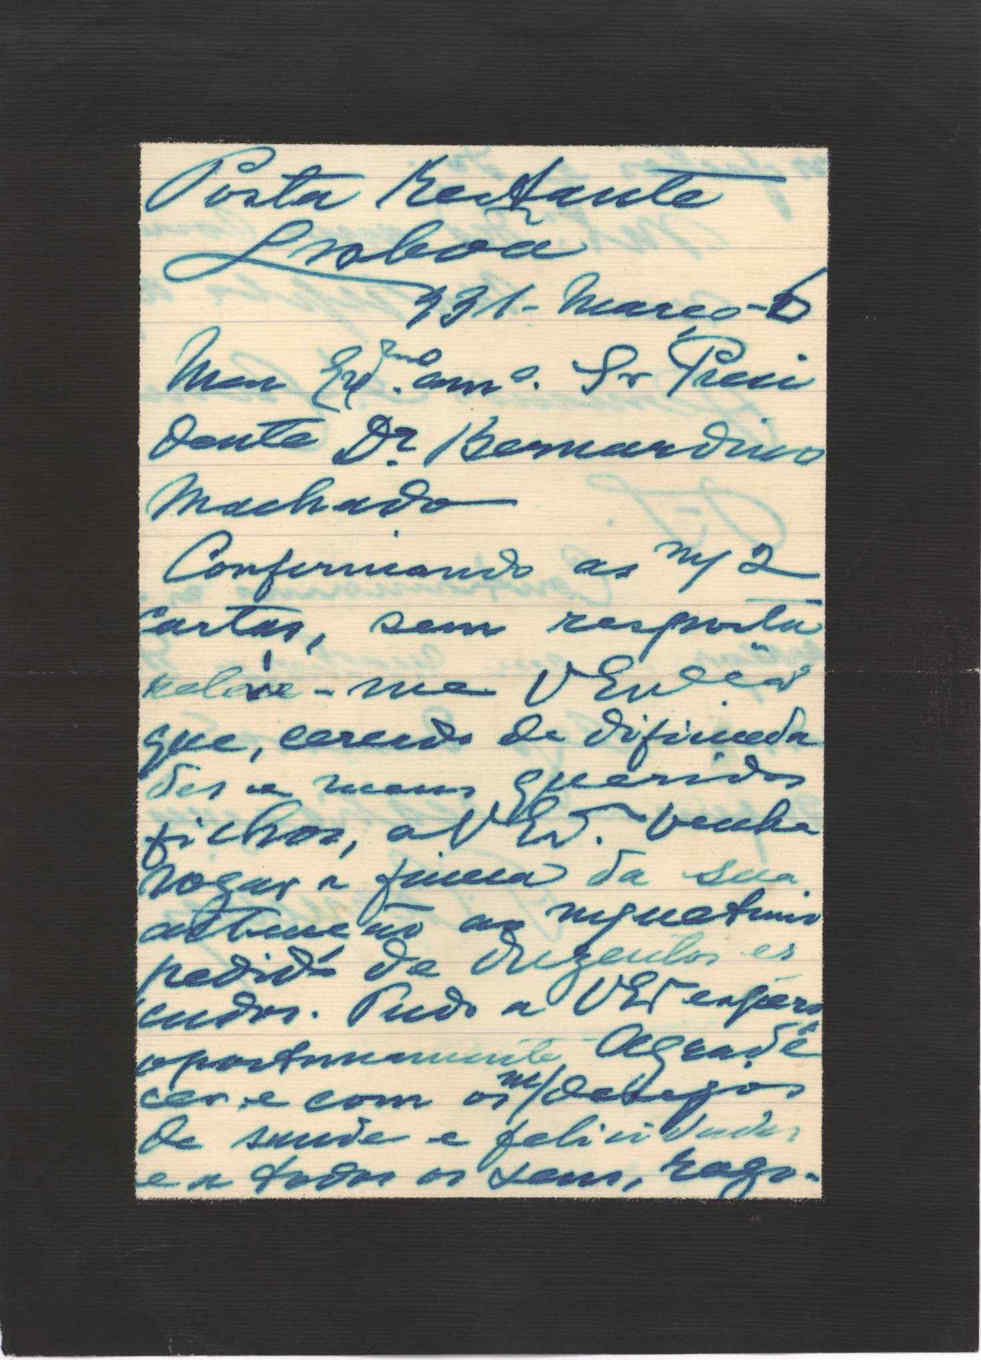 Posta Restante
Lisboa
931 - Março - 6
Meu Exmo. amo. Sr Presi
dente Dr. Bernardino
Machado
Confirmando as m/ 2
cartas, sem resposta
releve-me V Excia
que, cercado de dificulda
des e meus queridos
filhos, a V Ex. venha
rogar a fineza da sua
attenção ao
pedido de duzentos es
cudos. Pudo a V Ex
oportunamente agrade
cer e com os m/ desejos
de saude e felicidades
e a todos os seus, rogo-